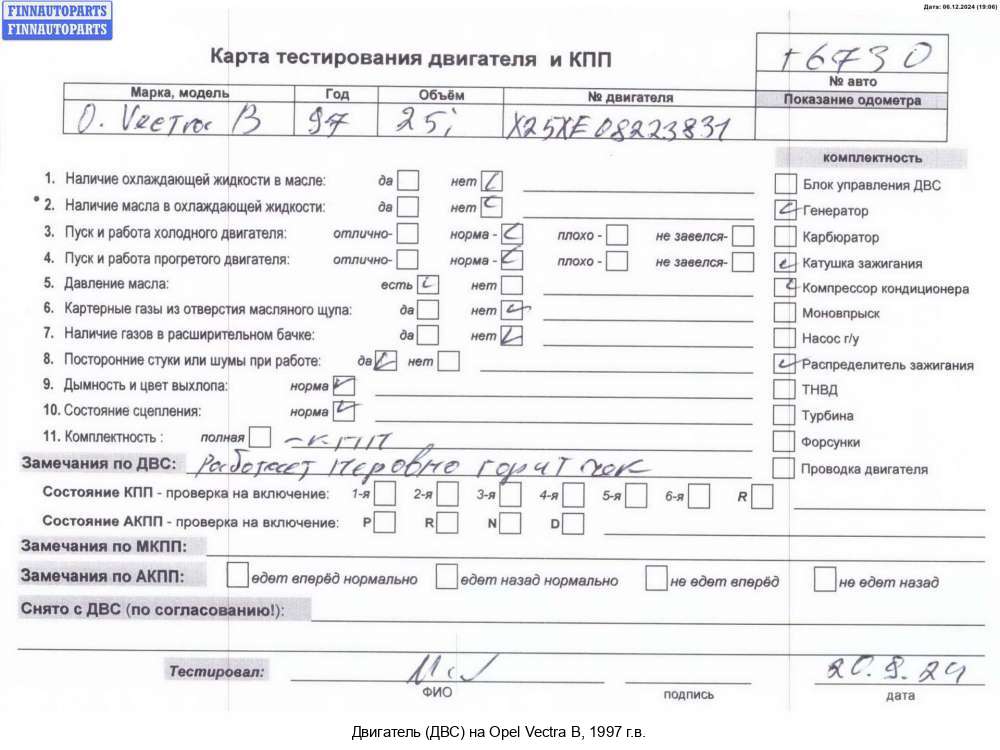 FINNAUTOPARTS
FINNAUTOPARTS
Дата: 06.12.2024 (19:06)
Карта тестирования двигателя и КПП
+6730
№ авто
Марка, модель Год Объём № двигателя Показание одометра
O. Vectra B 97 25i X25XE 08223831
комплектность
1. Наличие охлаждающей жидкости в масле: да нет
Блок управления ДВС
2. Наличие масла в охлаждающей жидкости: да нет
Генератор
3. Пуск и работа холодного двигателя: отлично- норма - плохо - не завелся-
Карбюратор
4. Пуск и работа прогретого двигателя: отлично- норма - плохо - не завелся-
Катушка зажигания
5. Давление масла: есть нет
Компрессор кондиционера
6. Картерные газы из отверстия масляного щупа: да нет
Моновпрыск
7. Наличие газов в расширительном бачке: да нет
Насос г/у
8. Посторонние стуки или шумы при работе: да нет
Распределитель зажигания
9. Дымность и цвет выхлопа: норма
ТНВД
10. Состояние сцепления: норма
Турбина
11. Комплектность : полная -КПП
Форсунки
Замечания по ДВС: Работает неровно горит чек
Проводка двигателя
Состояние КПП - проверка на включение: 1-я 2-я 3-я 4-я 5-я 6-я R
Состояние АКПП - проверка на включение: P R N D
Замечания по МКПП:
Замечания по АКПП: едет вперёд нормально едет назад нормально не едет вперёд не едет назад
Снято с ДВС (по согласованию!):
Тестировал: 20.9.24
ФИО подпись дата
Двигатель (ДВС) на Opel Vectra B, 1997 г.в.